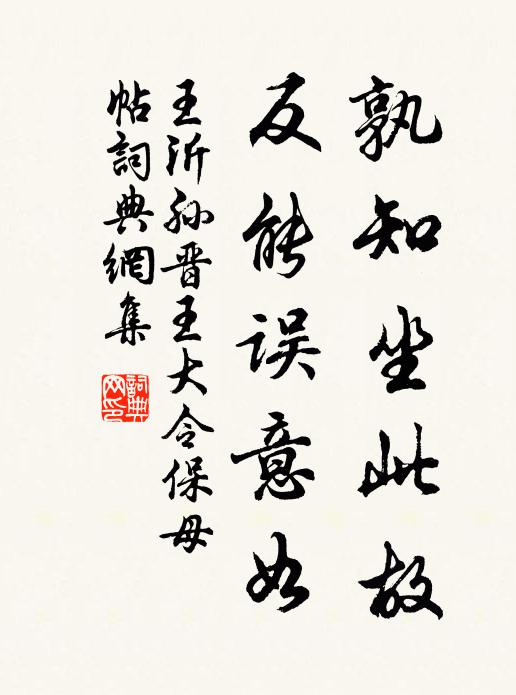 孰知坐此故
反能误意如
王沂孙晋王大令保母
帖詞典網集
詞典网印